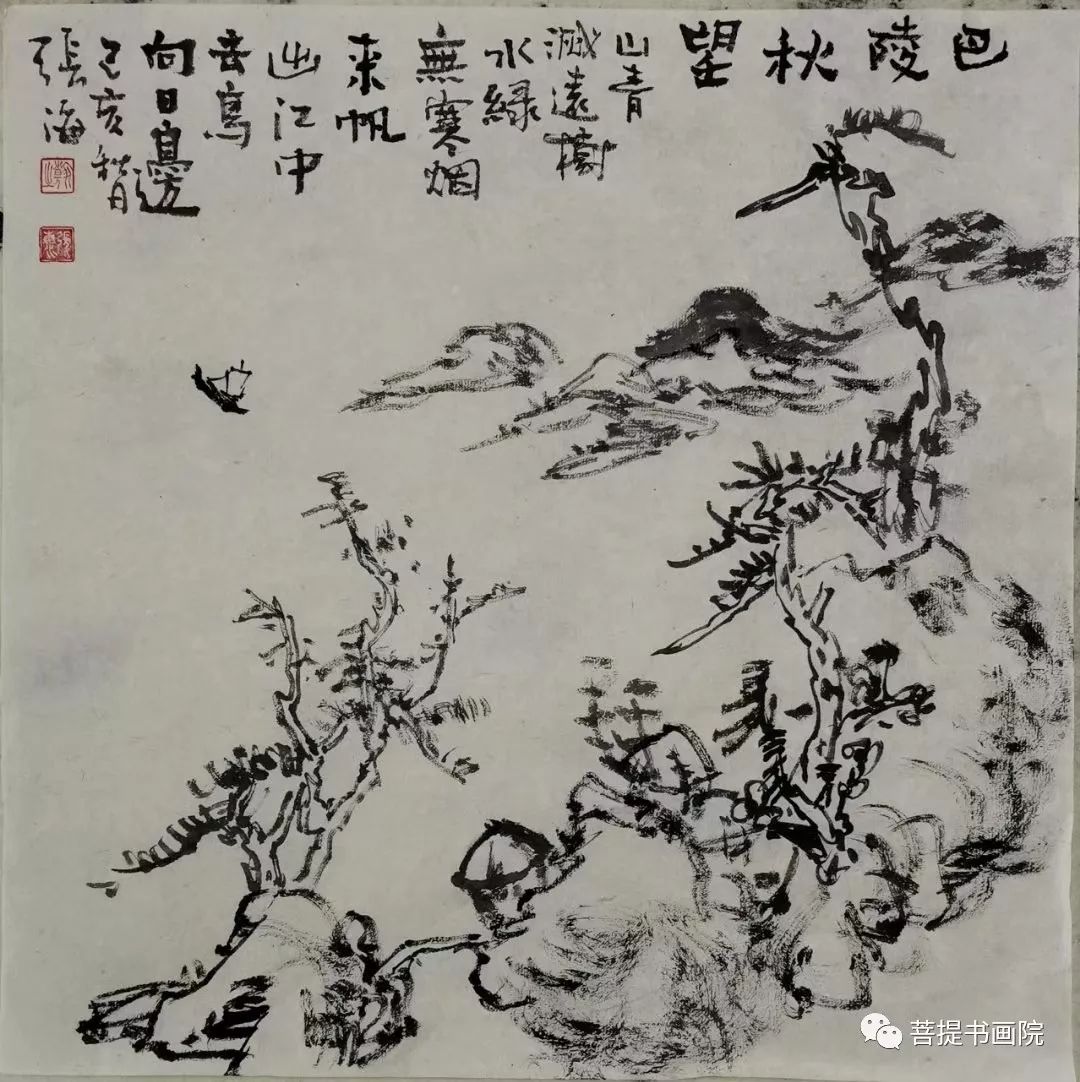 巴陵秋望
山青
滅遠樹
水緑
無寒烟
来帆
出江中
去鳥
向日邊
己亥秋月
張海
菩提书画院